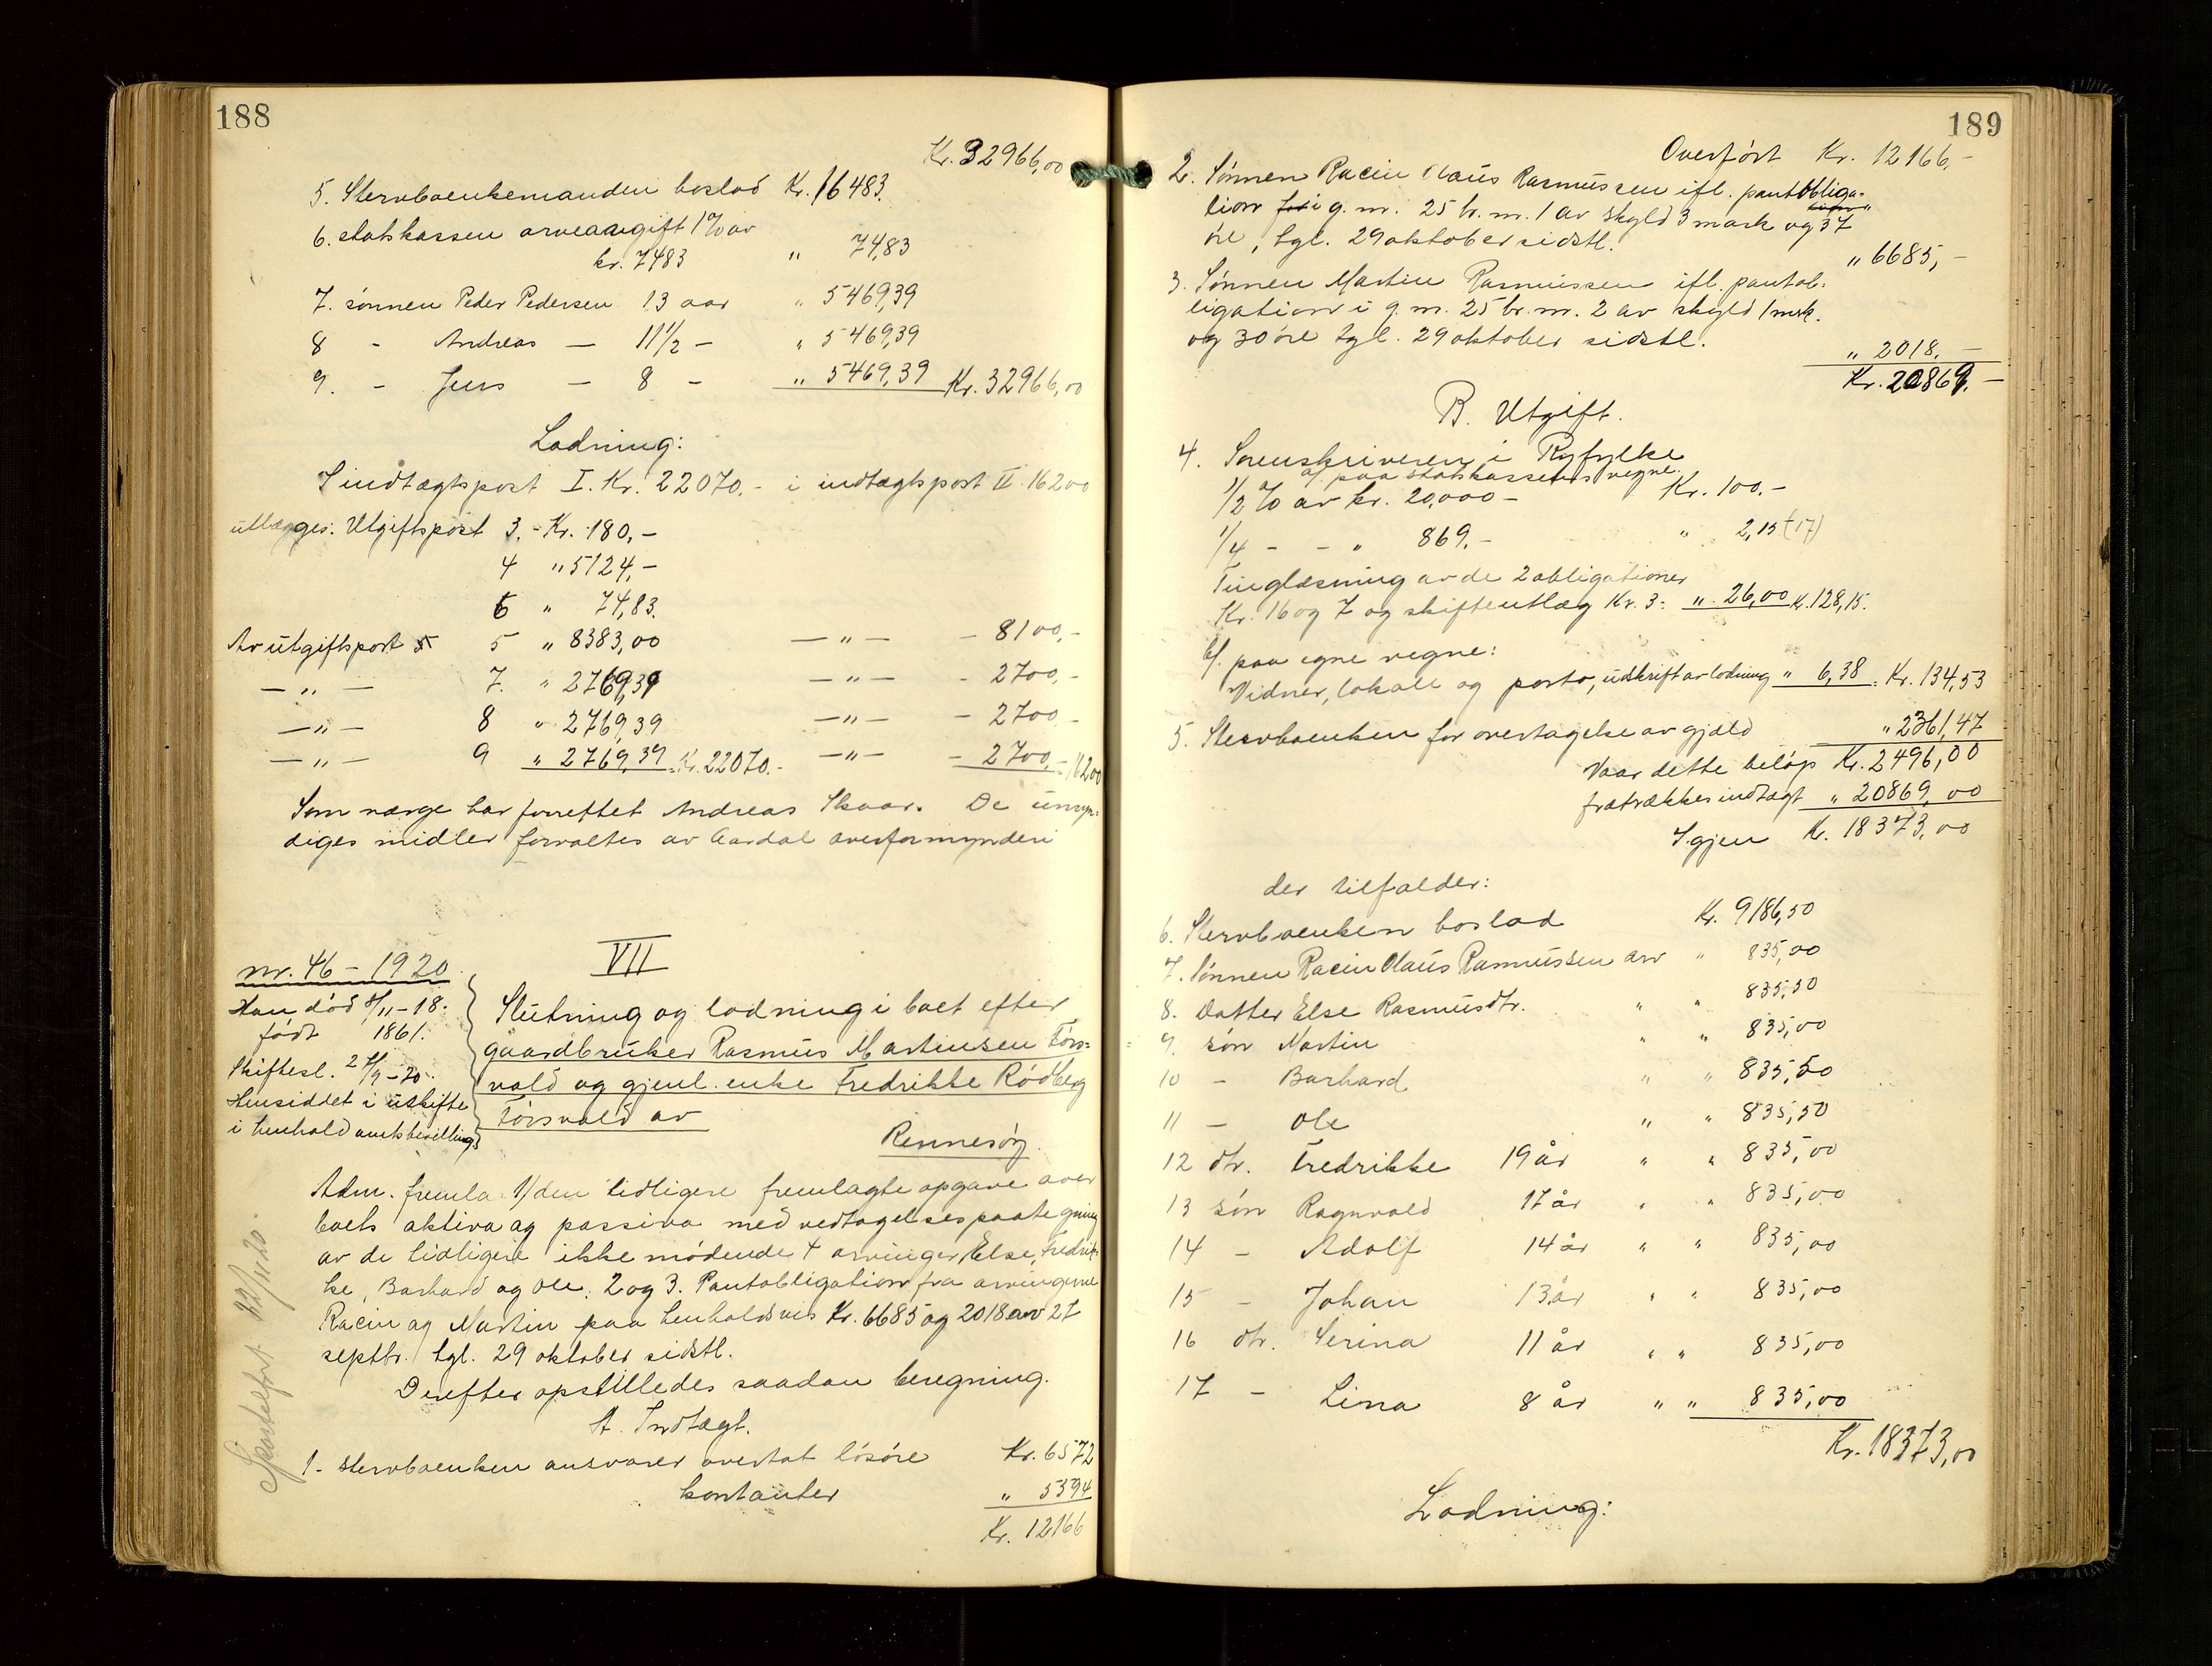 188
Kr. 32966,00
5. Stervboenkemanden boslod Kr. 16483.
6. statskassen arveavgift 1% av
kr. 7483 " 74,83
7. sønnen Peder Pedersen 13 aar " 5469,39
8 - Andreas — 11½ - " 5469,39
9. - Jens — 8 - " 5469,39 Kr. 32966,00
Lodning:
I indtægtspost I. Kr. 22070.- i indtægtspost II 16200
utlægges: Utgiftspost 3. - Kr. 180,-
4 " 5124,-
6 " 74,83.
Av utgiftspost 5 " 8383,00 — " — - 8100,-
— " — 7. " 2769,39 — " — - 2700,-
— " — 8 " 2769,39 — " — - 2700,-
— " — 9 " 2769,39 Kr. 22070.- — " — - 2700,- 16200
Som værge har forrettet Andreas Skaar. De umyn-
diges midler forvaltes av Aardal overformynderi
VII
nr. 46 - 1920
Han død 8/11-18.
født 1861.
Skiftesl. 27/9-20
Hensiddet i uskifte
i henhold amtsbevilling
Slutning og lodning i boet efter
gaardbruker Rasmus Martinsen Førs-
vold og gjenl. enke Fredrikke Rødberg
Førsvold av
Rennesøy.
Adm. fremla 1/ den tidligere fremlagte opgave over
boets aktiva og passiva med vedtagelsespaategning
av de tidligere ikke mødende 4 arvinger, Else, Fredrik-
ke, Barhard og Ole. 2 og 3. Pantobligation fra arvingerne
Racin og Martin paa henholdsvis Kr. 6685 og 2018 av 27
septbr. tgl. 29 oktober sidstl.
Derefter opstilledes saadan beregning.
A. Indtægt.
1. Stervboenken ansvarer overtat løsøre Kr. 6572
kontanter " 5394
Kr. 12166
189
Overført Kr. 12166,-
2. Sønnen Racin Olaus Rasmussen ifl. pantobliga-
tion i g. nr. 25 br. nr. 1 av skyld 3 mark og 37
øre, tgl. 29 oktober sidstl. " 6685,-
3. Sønnen Martin Rasmussen ifl. pantob-
ligation i g. nr. 25 br. nr. 2 av skyld 1 mrk.
og 30 øre tgl. 29 oktober sidstl. " 2018.-
Kr. 20869.-
B. Utgift.
4. Sorenskriveren i Ryfylke
a/ paa statskassens vegne.
1/2 % av kr. 20,000 - Kr. 100.-
1/4 - - " 869.- " 2,15 (17)
Tinglæsning av de 2 obligationer
Kr. 16 og 7 og skifteutlæg Kr. 3: " 26,00 K. 128,15.
b/. paa egne vegne:
Vidner, lokale og porto, utskrift av lodning " 6,38 = Kr. 134,53
5. Stervboenken for overtagelse av gjæld " 2361,47
Naar dette beløp Kr. 2496,00
fratrækkes indtægt " 20869,00
Igjen K. 18373,00
der tilfalder:
6. Stervboenken boslod Kr. 9186,50
7. Sønnen Racin Olaus Rasmussen arv " 835,00
8. Datter Else Rasmusdtr. " " 835,50
9. søn Martin " " 835,00
10 - Barhard " " 835,50
11 - Ole " " 835,50
12 dtr. Fredrikke 19 år " " 835,00
13 søn Ragnvald 17 år " " 835,00
14 - Adolf 14 år " " 835,00
15 - Johan 13 år " " 835,00
16 dtr. Serina 11 år " " 835,00
17 - Lina 8 år " " 835,00
Kr. 18373,00
Lodning: